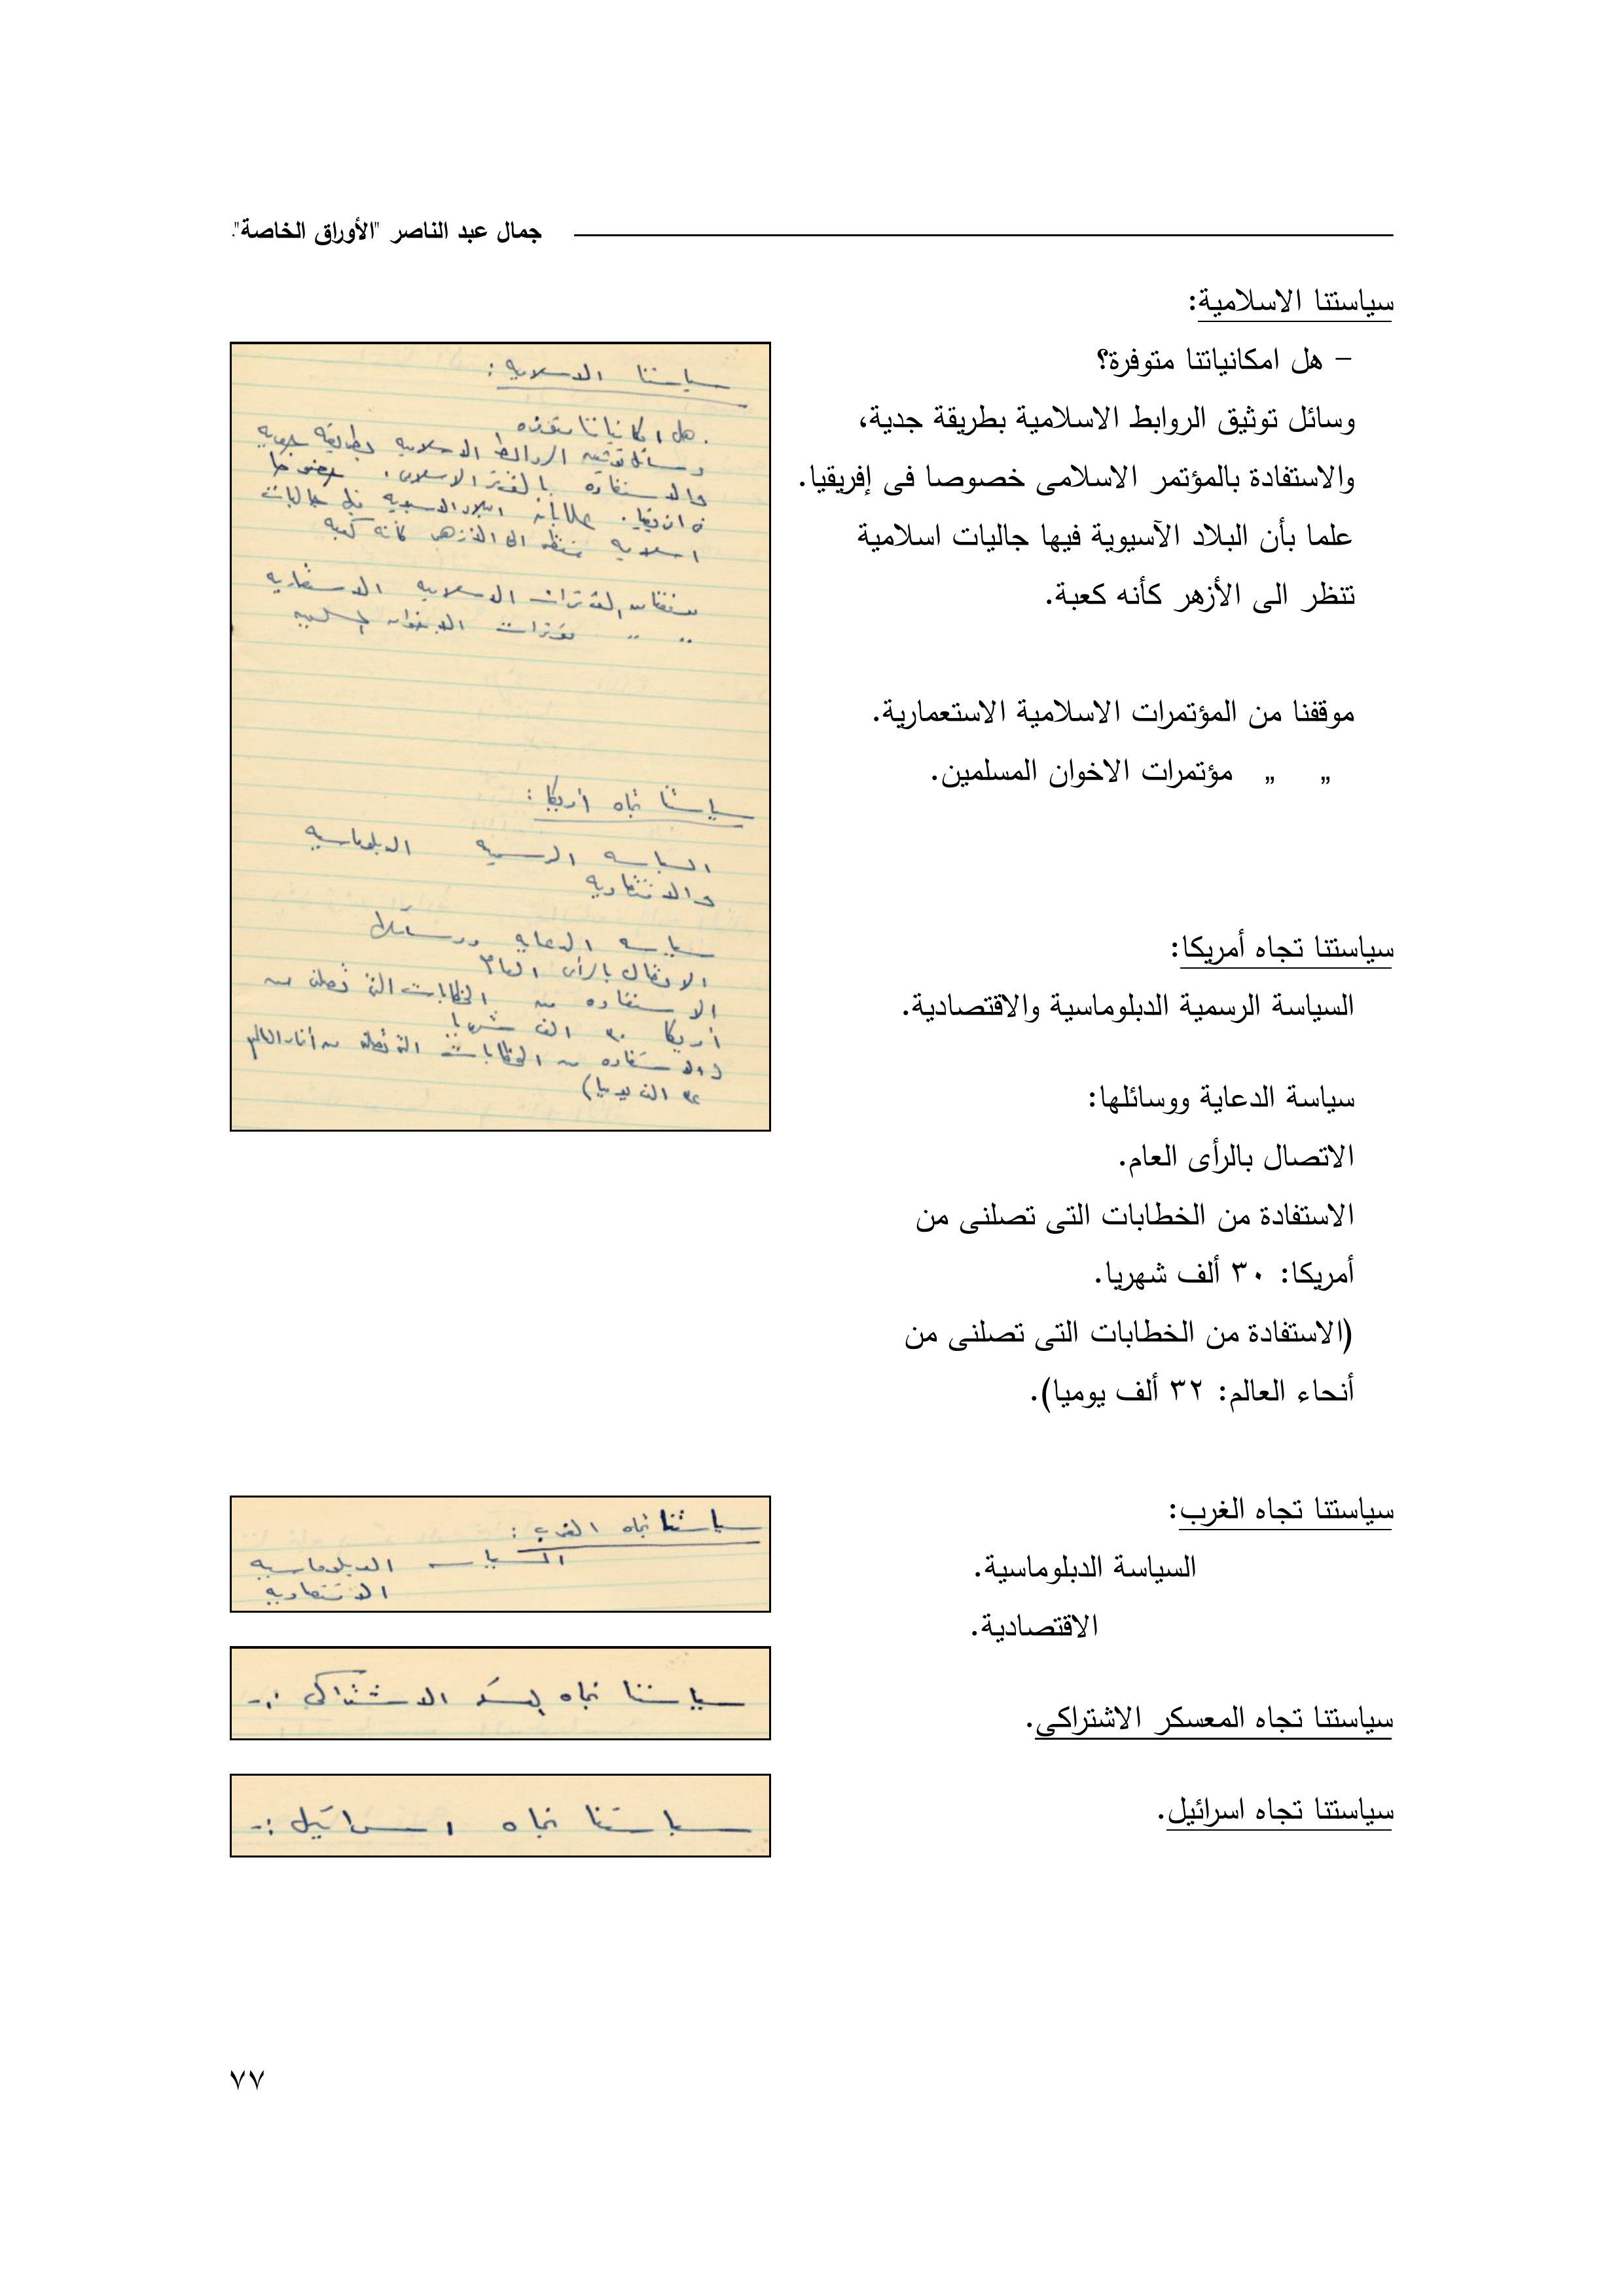 جمال عبد الناصر "الأوراق الخاصة".
سياستنا الاسلامية:
– هل امكانياتنا متوفرة؟
وسائل توثيق الروابط الاسلامية بطريقة جدية،
والاستفادة بالمؤتمر الاسلامى خصوصا فى إفريقيا.
علما بأن البلاد الآسيوية فيها جاليات اسلامية
تنظر الى الأزهر كأنه كعبة.
موقفنا من المؤتمرات الاسلامية الاستعمارية.
„ „ مؤتمرات الاخوان المسلمين.
سياستنا تجاه أمريكا:
السياسة الرسمية الدبلوماسية والاقتصادية.
سياسة الدعاية ووسائلها:
الاتصال بالرأى العام.
الاستفادة من الخطابات التى تصلنى من
أمريكا: ٣٠ ألف شهريا.
(الاستفادة من الخطابات التى تصلنى من
أنحاء العالم: ٣٢ ألف يوميا).
سياستنا تجاه الغرب:
السياسة الدبلوماسية.
الاقتصادية.
سياستنا تجاه المعسكر الاشتراكى.
سياستنا تجاه اسرائيل.
سياستنا الاسلاميه :
هل امكانياتنا متوفره
وسائل توثيق الروابط الاسلاميه بطريقه جديه
والاستفاده بالمؤتمر الاسلامى . خصوصا
فى افريقيا . علما بأن البلاد الاسيويه فيها جاليات
اسلاميه تنظر الى الأزهر كأنه كعبه
موقفنا من المؤتمرات الاسلاميه الاستعماريه
„ „ مؤتمرات الاخوان المسلمين
سياستنا تجاه أمريكا :
السياسه الرسميه الدبلوماسيه
والاقتصاديه
سياسه الدعايه ووسائلها
الاتصال بالرأى العام
الاستفاده من الخطابات التى تصلنى من
أمريكا ٣٠ الف شهريا
(الاستفاده من الخطابات التى تصلنى من أنحاء العالم
٣٢ الف يوميا)
سياستنا تجاه الغرب :
السياسه الدبلوماسيه
الاقتصاديه
سياستنا تجاه المعسكر الاشتراكى :-
سياستنا تجاه اسرائيل :-
٧٧